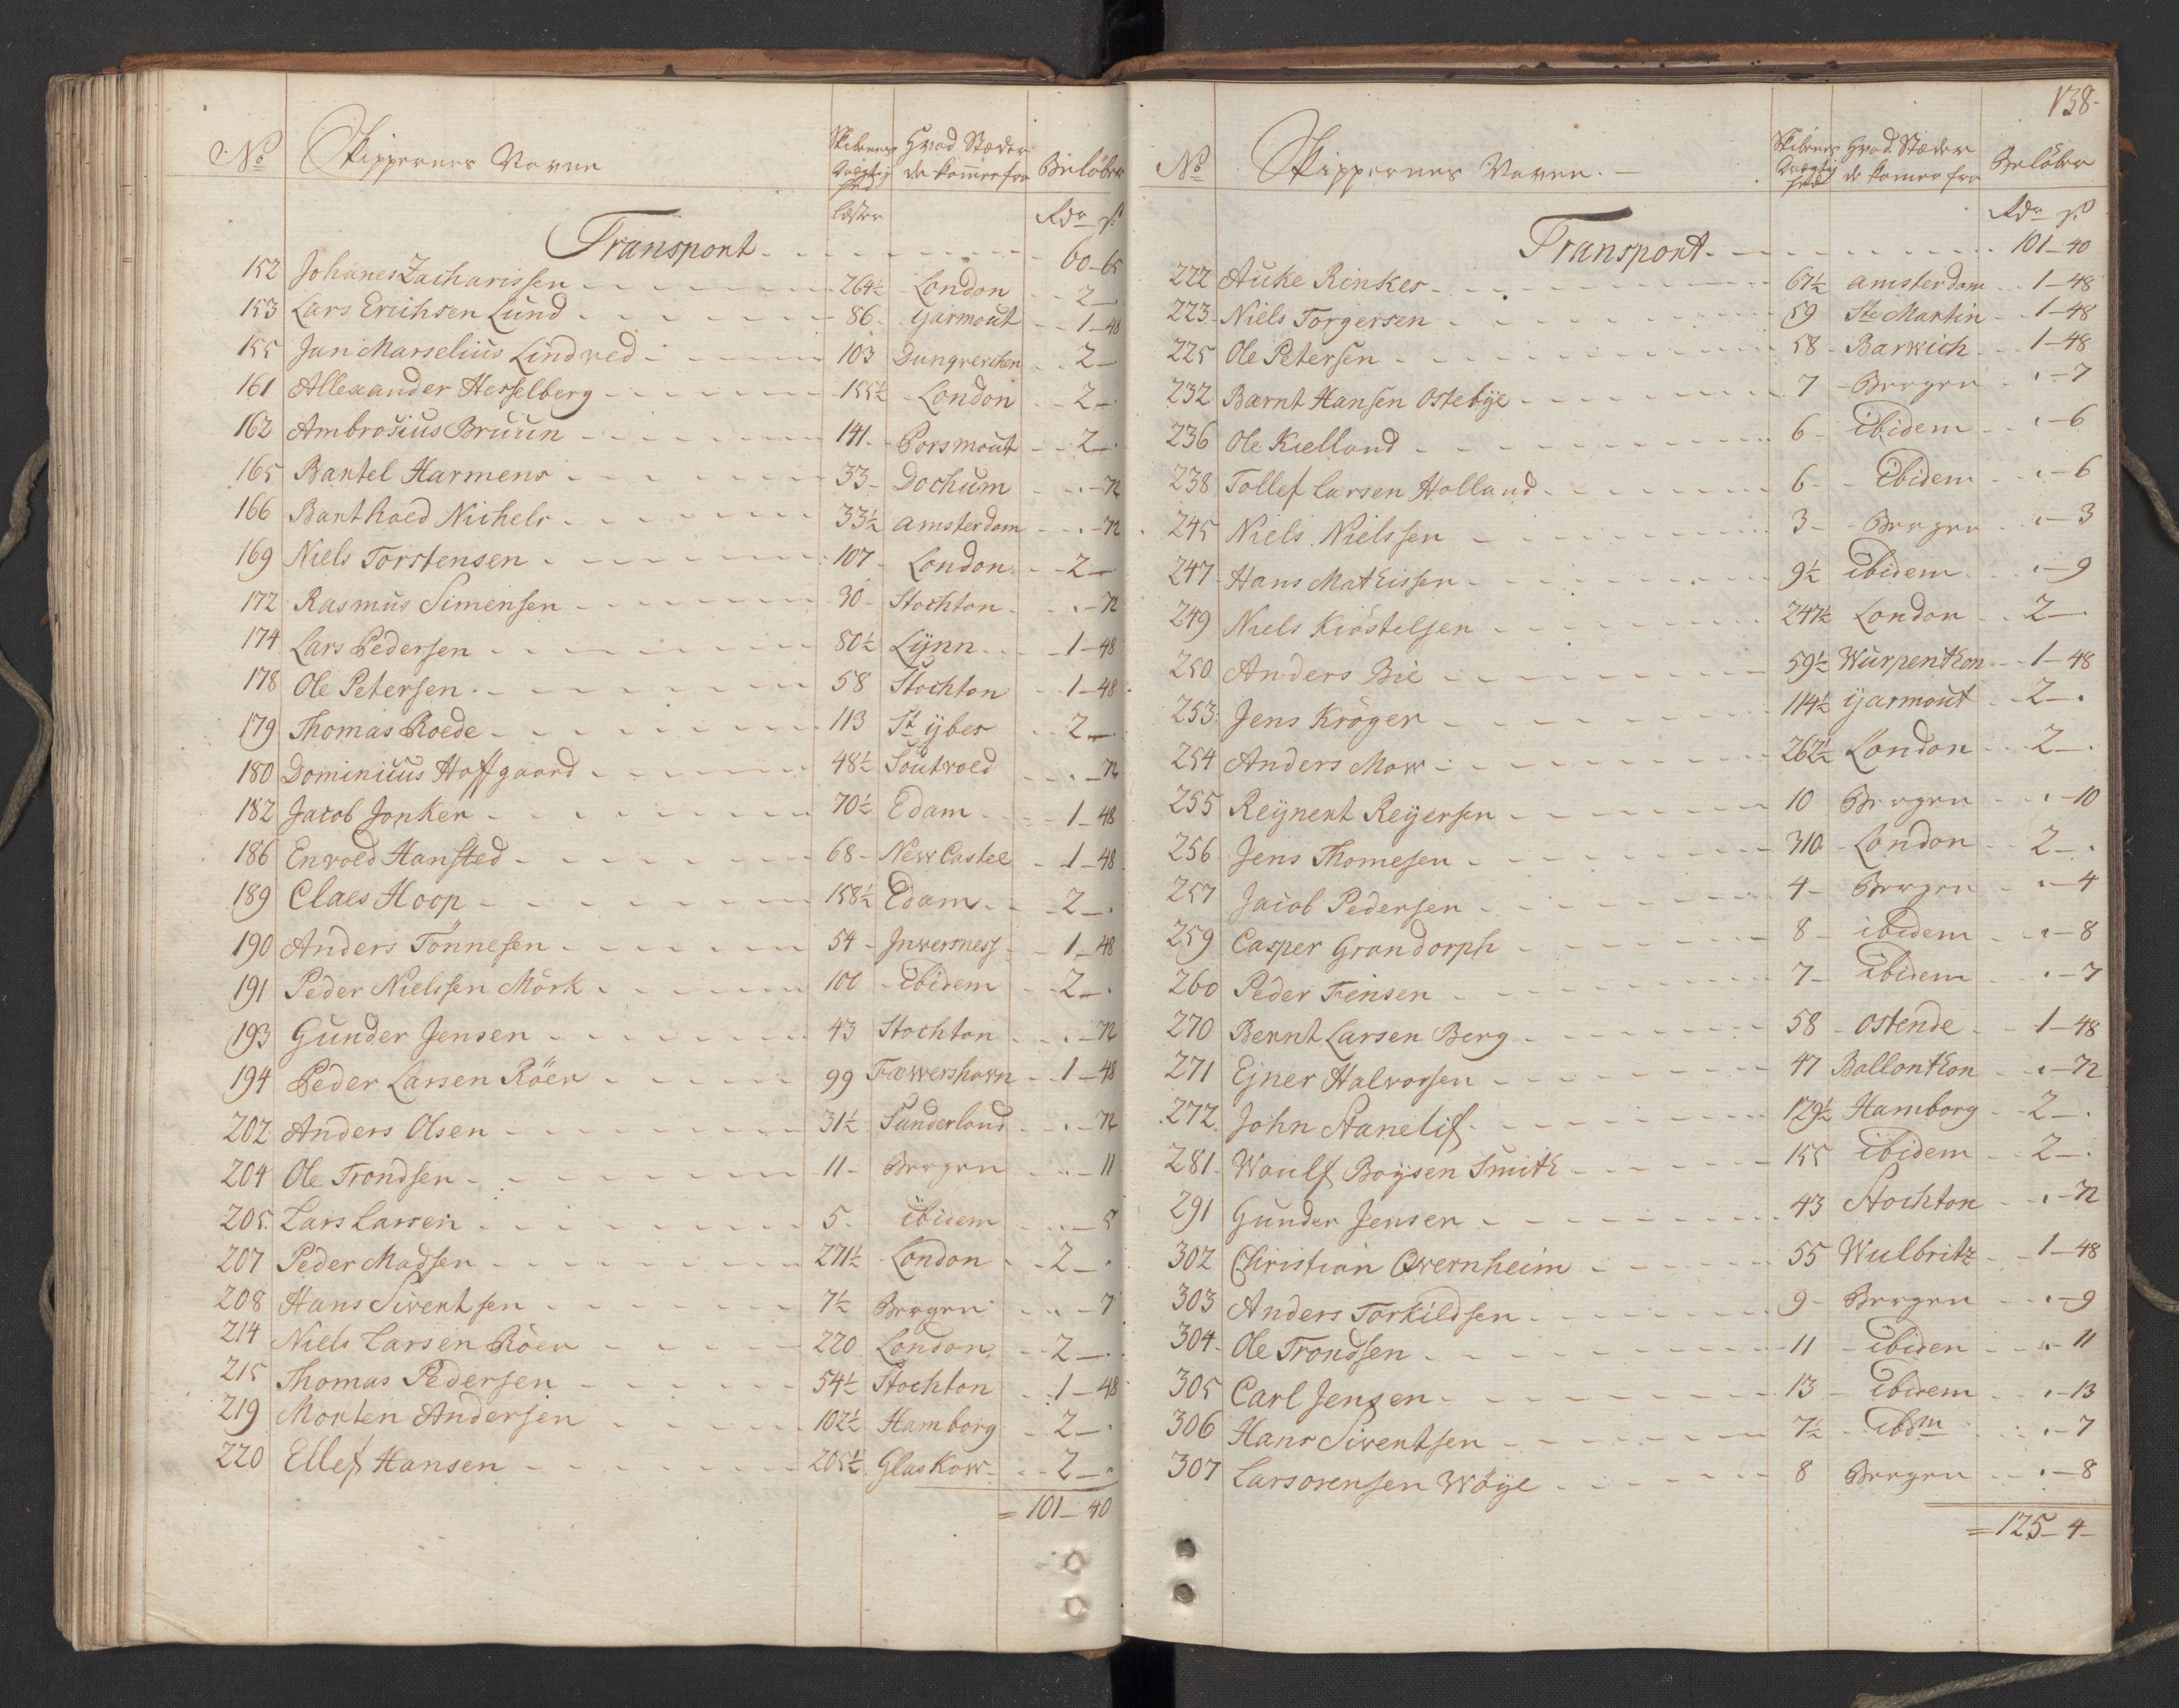 No Skippernes Navne Skibenes Drægtighed Hvad Stæder de kommer fra Beløber
Læster Rdr s
Transport 60-65
152 Johanes Zacharissen 264½ London 2-
153 Lars Erichsen Lund 86 Yarmout 1-48
155 Jan Marselius Lindved 103 Dunqverchen 2-
161 Allexander Hesselberg 155½ London 2-
162 Ambrosius Bruun 141 Porsmout 2-
165 Bartel Harmens 33 Dochum -72
166 Barthold Nichels 33½ amsterdam -72
169 Niels Torstensen 107 London 2-
172 Rasmus Simensen 30 Stochton -72
174 Lars Pedersen 80½ Lynn 1-48
178 Ole Petersen 58 Stochton 1-48
179 Thomas Roede 113 St ybes 2-
180 Dominicus Hoffgaard 48½ Soutvold -72
182 Jacob Jonker 70½ Edam 1-48
186 Envold Hansted 68 New Castel 1-48
189 Claes Hoop 158½ Edam 2-
190 Anders Tönnesen 54 Inversness 1-48
191 Peder Nielssen Mörk 100 Ibidem 2-
193 Gunder Jensen 43 Stochton -72
194 Peder Larsen Röer 99 Fæwershavn 1-48
202 Anders Olsen 31½ Sunderland -72
204 Ole Trondsen 11 Bergen -11
205 Lars Larsen 5 ibidem -5
207 Peder Madsen 271½ London 2-
208 Hans Siventsen 7½ Bergen -7
214 Niels Larsen Röer 220 London 2-
215 Thomas Pedersen 54½ Stochton 1-48
219 Morten Andersen 102½ Hamborg 2-
220 Ellef Hansen 205½ Glaskow 2-
= 101-40
138
No Skippernes Navne Skibenes Drægtighed Hvad Stæder de komer fra Beløber
Rdr s
Transport 101-40
222 Auke Rinkes 67½ amsterdam 1-48
223 Niels Torgersen 59 Ste Martin 1-48
225 Ole Petersen 58 Barwich 1-48
232 Bærnt Hansen Ostebye 7 Bergen -7
236 Ole Kielland 6 ibidem -6
238 Tollef Larsen Holland 6 Ibidem -6
245 Niels Nielssen 3 Bergen -3
247 Hans Mathissen 9½ ibidem -9
249 Niels Kiöstelsen 247½ London 2-
250 Anders Bie 59½ Wurpenthon 1-48
253 Jens Kröger 114½ yarmout 2-
254 Anders Mow 262½ London 2-
255 Reynert Reyersen 10 Bergen -10
256 Jens Thomesen 310 London 2-
257 Jacob Pedersen 4 Bergen -4
259 Casper Grandorph 8 ibidem -8
260 Peder Finsen 7 Ibidem -7
270 Bernt Larsen Berg 58 Ostende 1-48
271 Ejner Halvorsen 47 Ballonthon -72
272 John Stanelif 129½ Hamborg 2-
281 Woulf Boysen Smith 155 ibidem 2-
291 Gunder Jensen 43 Stochton -72
302 Christian Qvernheim 55 Wulbritz 1-48
303 Anders Torkildsen 9 Bergen -9
304 Ole Trondsen 11 ibiden -11
305 Carl Jensen 13 Ibidem -13
306 Hans Siventsen 7½ ibdm -7
307 Lars orensen Wöye 8 Bergen -8
= 125-4-